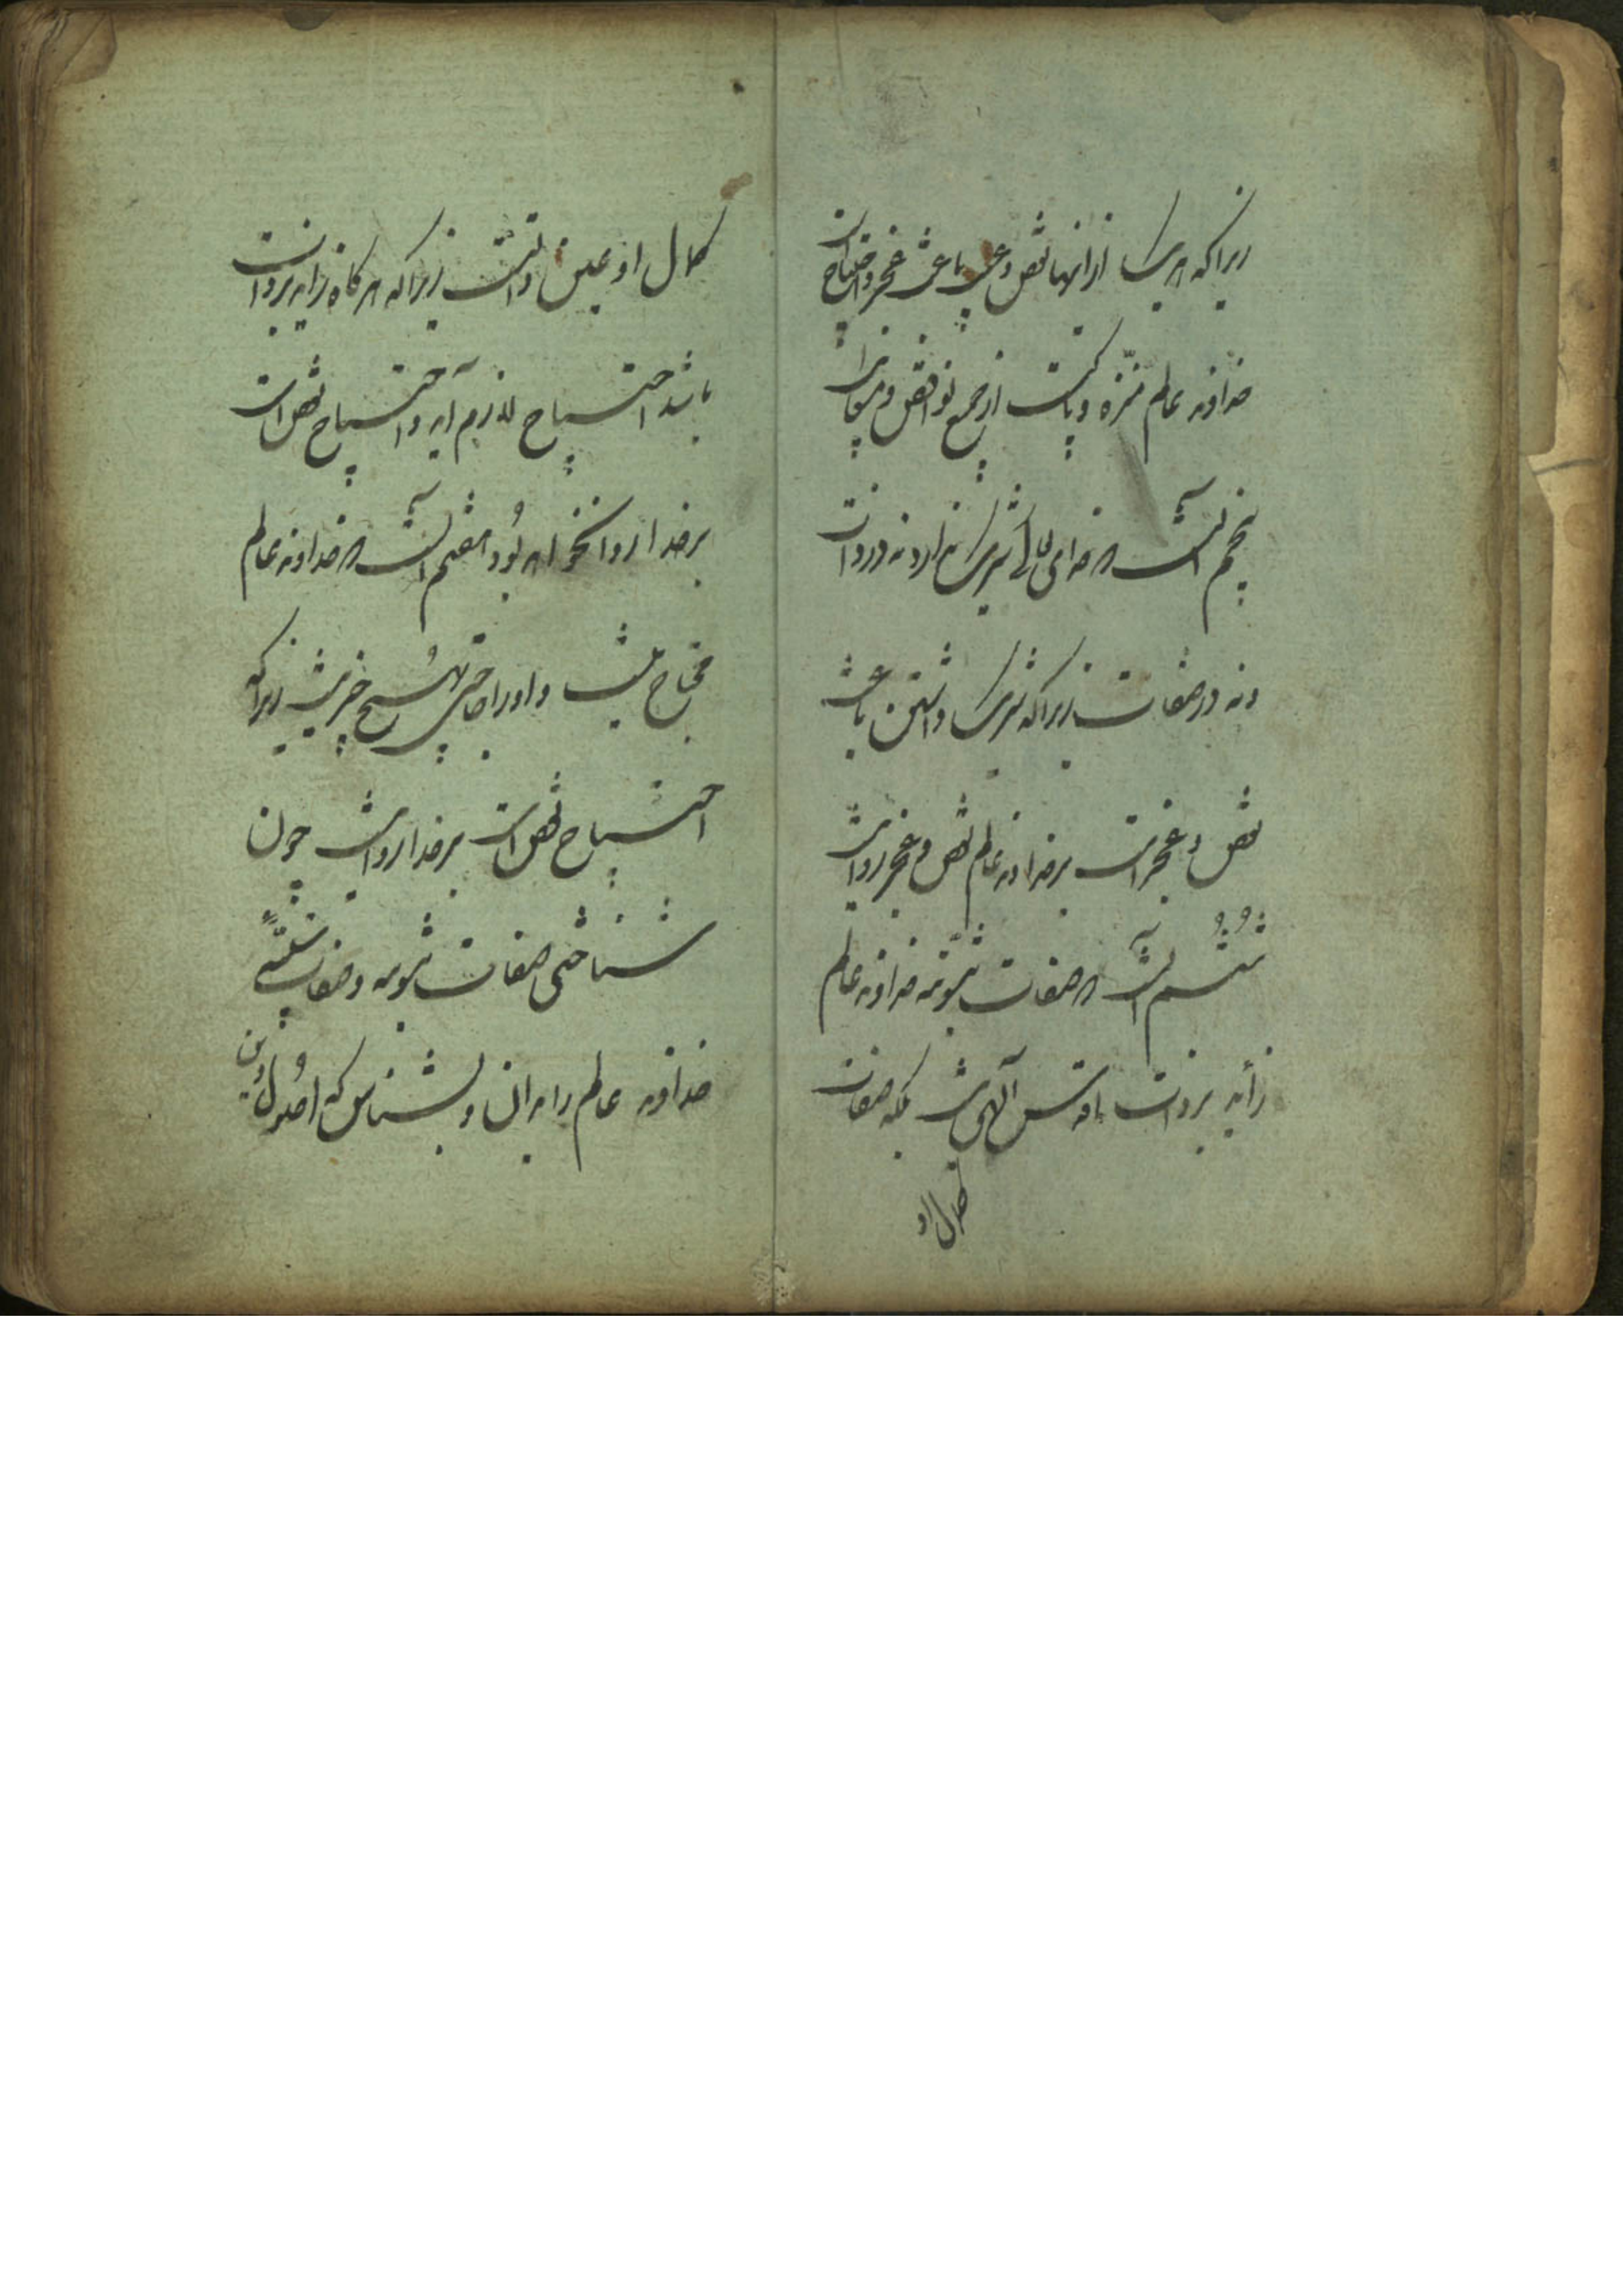 زیرا که هریک از اینها نقص و عیب و باعث عجز و احتیاج است
خداوند عالم منزه و پاکست از جمیع نواقص و عیوبات
پنجم آنست که خدای تعالی شریک ندارد نه در ذات
و نه در صفات زیرا که شریک داشتن باعث
نقص و عجز است بر خداوند عالم نقص و عجز روا نیست
ششم آنست که صفات ثبوتیه خداوند عالم
زاید بر ذات اقدس الهی نیست بلکه صفات
کمال او
کمال او عین ذاتست زیرا که هرگاه زاید بر ذات
باشد احتیاج لازم آید و احتیاج نقص است
بر خدا روا نخواهد بود هفتم آنست که خداوند عالم
محتاج نیست و او را حاجتی بهیچ چیز نیست زیرا که
احتیاج نقص است بر خدا روا نیست چون
شناختی صفات ثبوتیه و صفات سلبیّهٔ
خداوند عالم را بدان و بشناس که اصول دین